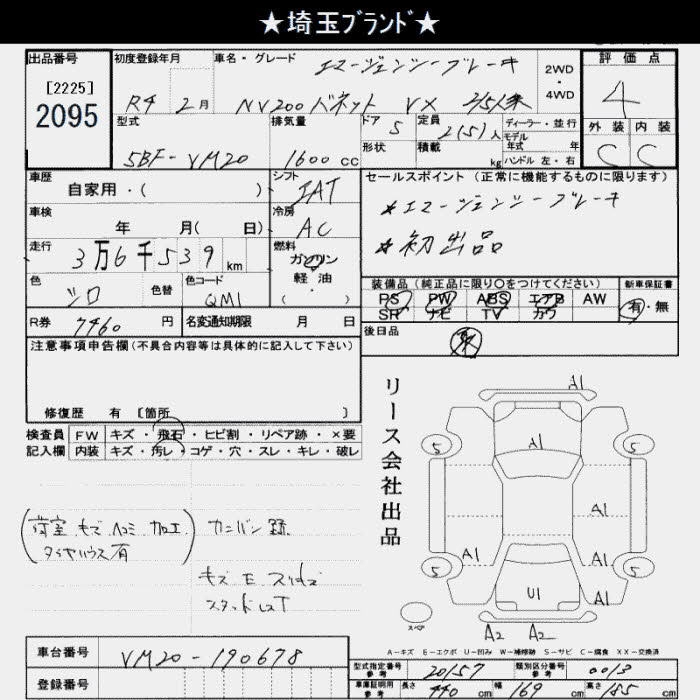 ★埼玉ﾌﾞﾗﾝﾄﾞ★
出品番号
[2225]
2095
初度登録年月
R4 2月
車名・グレード
エマージェンシーブレーキ
NV200 バネット VX 2/5人乗
2WD
・
4WD
評価点
4
外装 内装
C C
型式
5BF-VM20
排気量
1600cc
ドア 5
形状
定員 2(5)人
積載 kg
ディーラー・並行
モデル年式 年
ハンドル 左・右
車歴
自家用・( )
シフト
IAT
車検
年 月( 日)
冷房
AC
走行
3万6千539km
燃料
ガソリン
軽油
・
色
シロ
色替
色コード
QM1
R券 7460 円
名変通知期限 月 日
セールスポイント(正常に機能するものに限ります)
★エマージェンシーブレーキ
★初出品
装備品(純正品に限り〇をつけてください)
PS PW ABS エアB AW
SR ナビ TV カワ
新車保証書
有・無
後日品
注意事項申告欄(不具合内容等は具体的に記入して下さい)
修復歴 有 [箇所 ]
検査員記入欄
FW キズ・飛石・ヒビ割・リペア跡・×要
内装 キズ・汚レ・コゲ・穴・スレ・キレ・破レ
(荷室 キズ ヘコミ 加工
タイヤハウス有)
カンバン跡
リース会社出品
A1
A1
5 5
A1
A1 A1
5 5
U1
A2 A2
スペア
A-キズ E-エクボ U-凹み W-補修跡 S-サビ C-腐食 XX-交換済
車台番号
VM20-190678
登録番号
型式指定番号参考 20157
類別区分番号参考 0013
車庫証明用参考 長さ 440 cm 幅 169 cm 高さ 185 cm